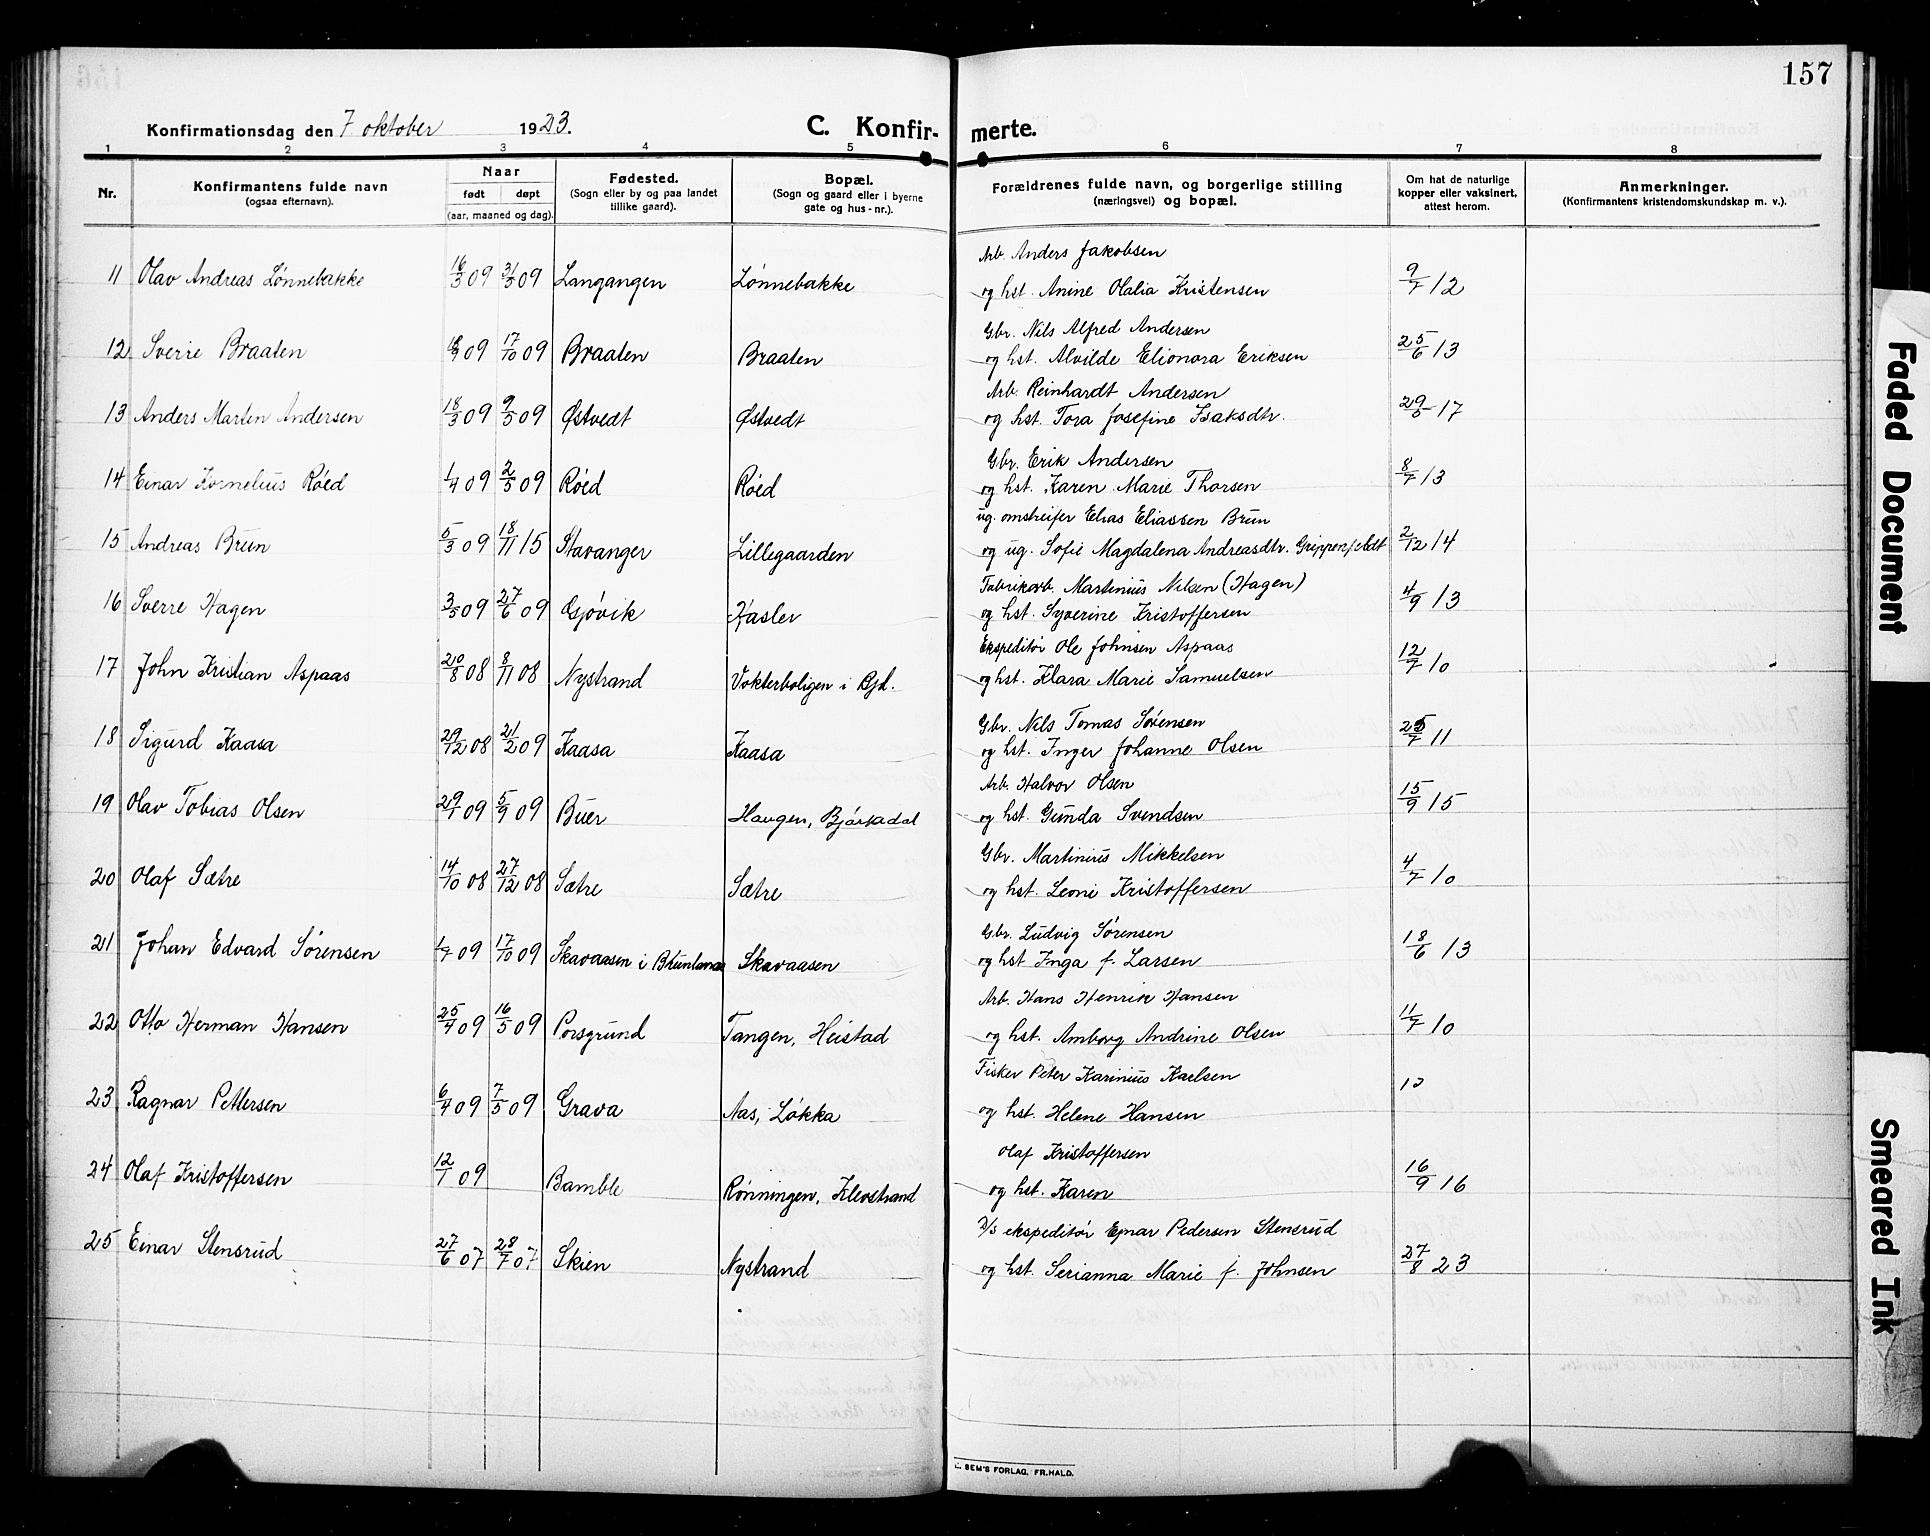 157
Konfirmationsdag den 7 oktober 1923. C. Konfir- merte.
1 2 3 4 5 6 7 8
Nr. Konfirmantens fulde navn (ogsaa efternavn). Naar født døpt (aar, maaned og dag). Fødested. (Sogn eller by og paa landet tillike gaard). Bopæl. (Sogn og gaard eller i byerne gate og hus-nr.). Forældrenes fulde navn, og borgerlige stilling (næringsvei) og bopæl. Om hat de naturlige kopper eller vaksinert, attest herom. Anmerkninger. (Konfirmantens kristendomskundskap m. v.).
Arb. Anders Jakobsen
11 Olav Andreas Lønnebakke 16/3 09 31/5 09 Langangen Lønnebakke og hst. Anine Olalia Kristensen 9/7 12
Gbr. Nils Alfred Andersen
12 Sverre Braaten 09 17/10 09 Braaten Braaten og hst. Alvilde Elionora Eriksen 25/6 13
Arb. Reinhardt Andersen
13 Anders Marten Andersen 18/3 09 9/5 09 Østvedt Østvedt og hst. Tora Josefine Isaksdtr. 29/5 17
Gbr. Erik Andersen
14 Einar Kornelius Røed 1/4 09 2/5 09 Røed Røed og hst. Karen Marie Thorsen 8/7 13
ug. omstreifer Elias Eliassen Brun
15 Andreas Brun 5/3 09 18/11 15 Stavanger Lillegaarden og ug. Sofie Magdalena Andreasdtr. Grippenfeldt 2/12 14
Fabrikarb. Martinius Nilsen (Hagen)
16 Sverre Hagen 3/5 09 27/6 09 Gjøvik Kasler og hst. Syverine Kristoffersen 4/9 13
Ekspeditør Ole Johnsen Aspaas
17 John Kristian Aspaas 20/8 08 8/11 08 Nystrand Vokterboligen i Bjd. og hst. Klara Marie Samuelsen 12/7 10
Gbr. Nils Tomas Sørensen
18 Sigurd Kaasa 29/12 08 21/2 09 Kaasa Kaasa og hst. Inger Johanne Olsen 25/7 11
Arb. Halvor Olsen
19 Olav Tobias Olsen 29/7 09 5/9 09 Buer Haugen, Bjørkedal og hst. Gunda Svendsen 15/9 15
Gbr. Martinius Mikkelsen
20 Olaf Sætre 14/10 08 27/12 08 Sætre Sætre og hst. Leoni Kristoffersen 4/7 10
Gbr. Ludvig Sørensen
21 Johan Edvard Sørensen 1/7 09 17/10 09 Skavaasen i Brunlanes Skavaasen og hst Inga f. Larsen 18/6 13
Arb. Hans Henrik Hansen
22 Otto Herman Hansen 25/4 09 16/5 09 Porsgrund Tangen, Heistad og hst. Amborg Andrine Olsen 11/7 10
Fisker Peter Karinius Kaelsen
23 Ragnar Pettersen 6/4 09 7/5 09 Grava Aas, Løkka og hst. Helene Hansen
Olaf Kristoffersen
24 Olaf Kristoffersen 12/1 09 Bamble Rønningen, Klevstrand og hst. Karen 16/9 16
D/S ekspeditør Ejnar Pedersen Stensrud
25 Einar Stensrud 27/6 07 28/7 07 Skien Nystrand og hst. Serianna Marie f. Johnsen 27/8 23
SEM'S FORLAG, FR.HALD.
Faded Document
Smeared Ink